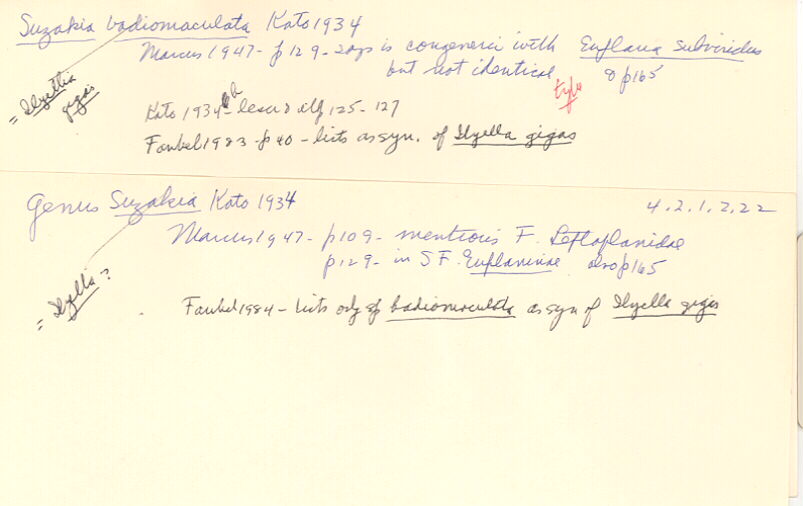 Suzakia badiomaculata Kato 1934
Marcus 1947 - p 129 - says is congeneric with Euplana subviridis
but not identical & p165
= Ilyella gigas
type
Kato 1934 b
125 - 127
Faubel 1983 - p 40 - lists as syn. of Ilyella gigas
Genus Suzakia Kato 1934 4.2.1.2.22
Marcus 1947 - p 109 - mentions F. Leptoplanidae
p 129 - in SF. Euplaninae also p165
= Ilyella?
Faubel 1984 - lists only sp badiomaculata as syn of Ilyella gigas